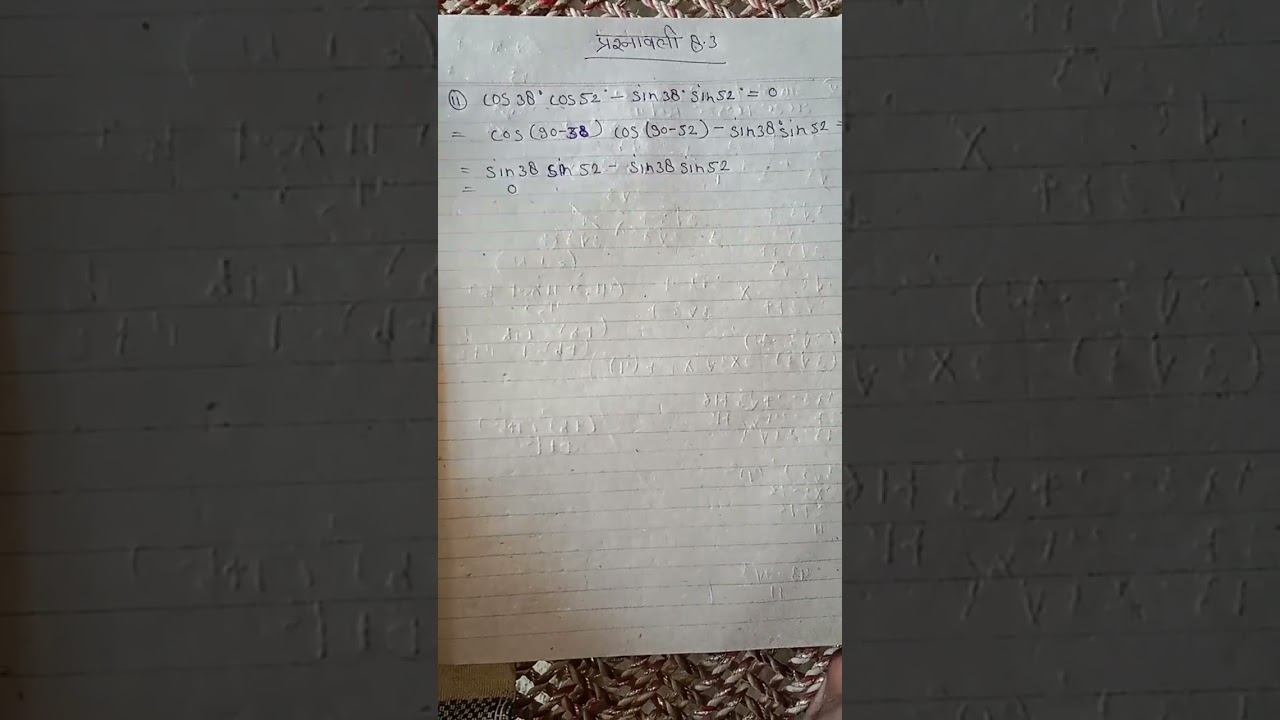 प्रश्नावली 8.3
(ii) cos 38° cos 52° - sin 38° sin 52° = 0
= cos (90-38) cos (90-52) - sin 38° sin 52 =
= sin 38 sin 52 - sin 38 sin 52
= 0